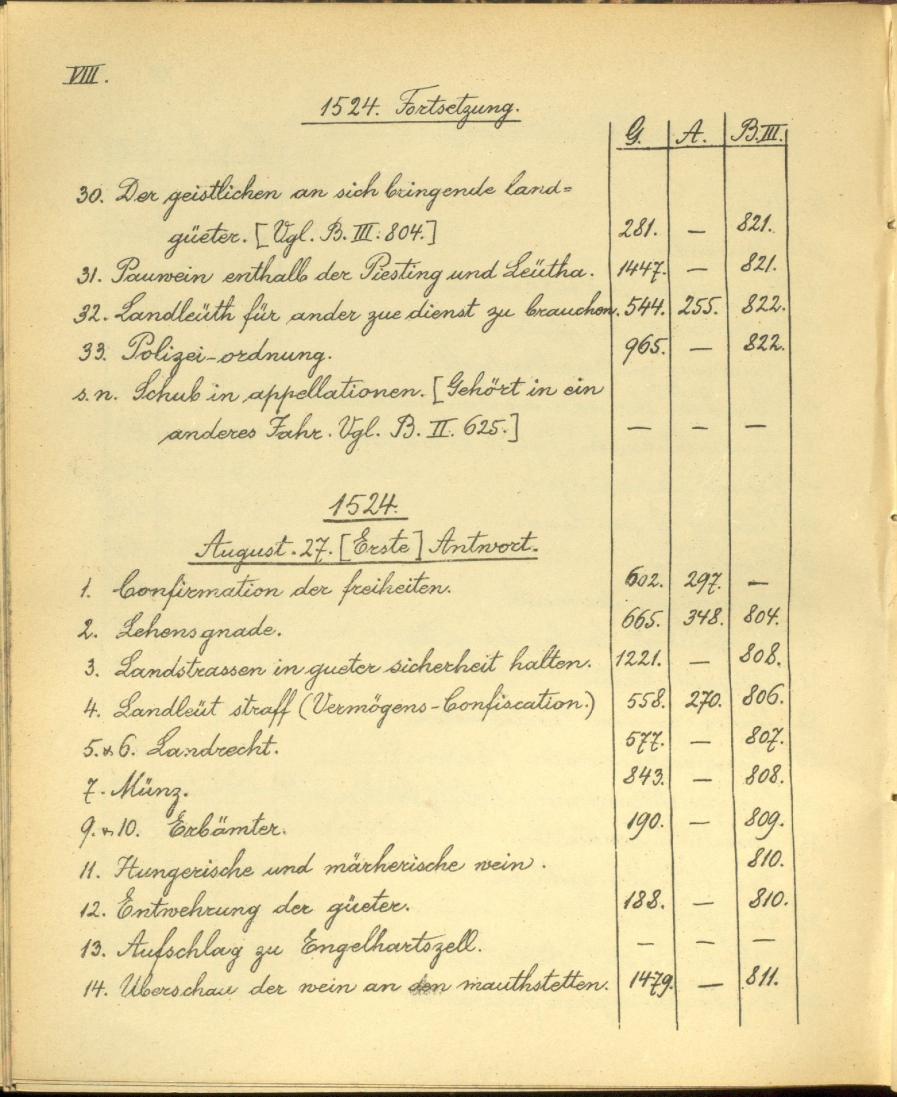 VIII.
1524. Fortsetzung.
G. A. B.III.
30. Der geistlichen an sich bringende land=
güeter. [Vgl. B. III. 804.] 281. — 821.
31. Pauwein enthalb der Piesting und Leütha. 1447. — 821.
32. Landleüth für ander zue dienst zu brauchen. 544. 255. 822.
33. Polizei-ordnung. 965. — 822.
s. n. Schub in appellationen. [Gehört in ein
anderes Jahr. Vgl. B. II. 625.] — — —
1524.
August. 27. [Erste] Antwort.
1. Confirmation der freiheiten. 602. 297. —
2. Lehensgnade. 665. 348. 804.
3. Landstrassen in gueter sicherheit halten. 1221. — 808.
4. Landleüt straff (Vermögens-Confiscation.) 558. 270. 806.
5. & 6. Landrecht. 577. — 807.
7. Münz. 843. — 808.
9. & 10. Erbämter. 190. — 809.
11. Hungerische und märherische wein. 810.
12. Entwehrung der güeter. 188. — 810.
13. Aufschlag zu Engelhartszell. — — —
14. Überschau der wein an den mauthstetten. 1479. — 811.